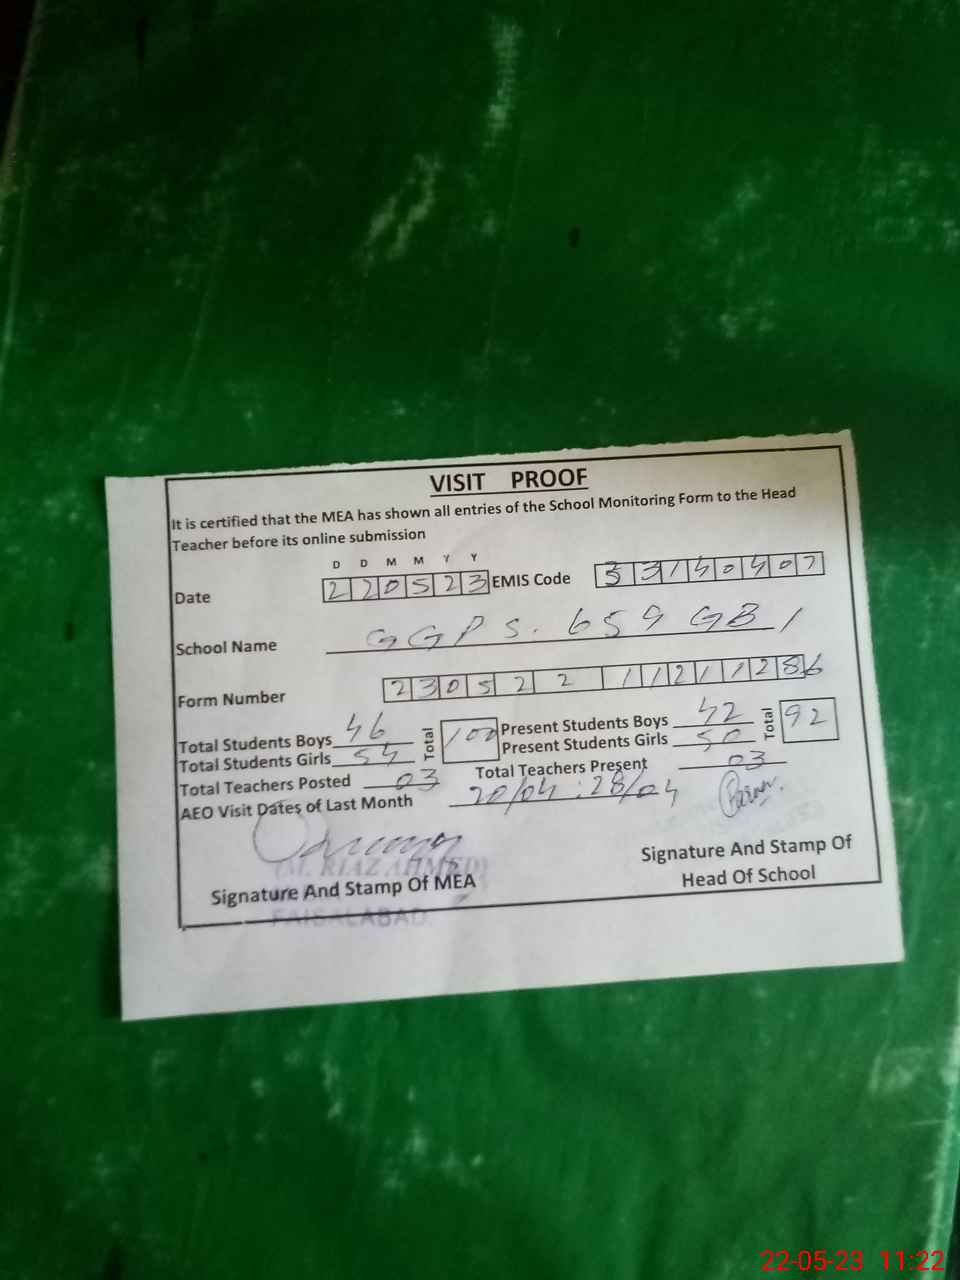 VISIT PROOF
It is certified that the MEA has shown all entries of the School Monitoring Form to the Head
Teacher before its online submission
D D M M Y Y
Date 220523 EMIS Code 33140407
School Name GGPS. 659 GB 1
Form Number 230522 11211286
Total Students Boys 46 Total 100 Present Students Boys 42 Total 92
Total Students Girls 54 Present Students Girls 50
Total Teachers Posted 03 Total Teachers Present 03
AEO Visit Dates of Last Month 20/04 : 28/04
(M. RIAZ AHMED)
Signature And Stamp Of MEA
FAISALABAD.
Signature And Stamp Of
Head Of School
22-05-23 11:22